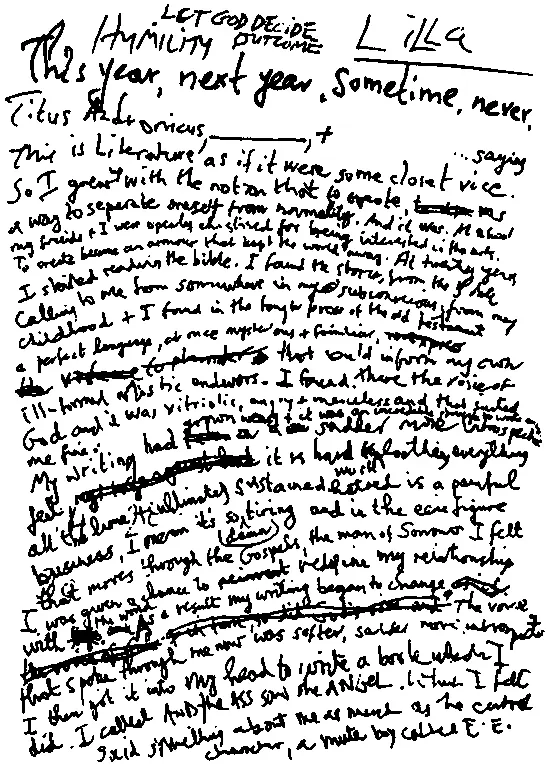 LET GOD DECIDE
HUMILITY OUTCOME LiLLa
This year, next year, sometime, never,
Titus Andronicus, +
... saying
This is literature, as if it were some closet vice.
So I grew with the notion that to create, was
a way to separate oneself from normality. And it was. At school
my friends + I were openly chastised for being interested in the arts.
To create became an armour that kept the world away. At twenty years
I started reading the bible. I found the stories from the Bible
calling to me from somewhere in my subconscious, from my
childhood + I found in the tougher prose of the old testament
a perfect language, at once mysterious + familiar,
that could inform my own
ill-formed artistic endevors. I found there the voice of
God and it was vitriolic, angry + merciless and that suited
me fine.
My writing had
sadder more introspective
it is hard loathing everything
all the time. Ultimately sustained is a painful
business, I mean it's so tiring and in the care figure
that moves through the Gospels, the man of Sorrows I felt
I was given a chance to redefine my relationship
with the world as a result my writing began to change. The voice
that spoke through me now was softer, sadder more introspective
I then got it into my head to write a book which I
did. I called AND the ASS SAW the ANGEL. I felt
said something about me as much as the central
character, a mute boy called E.E.